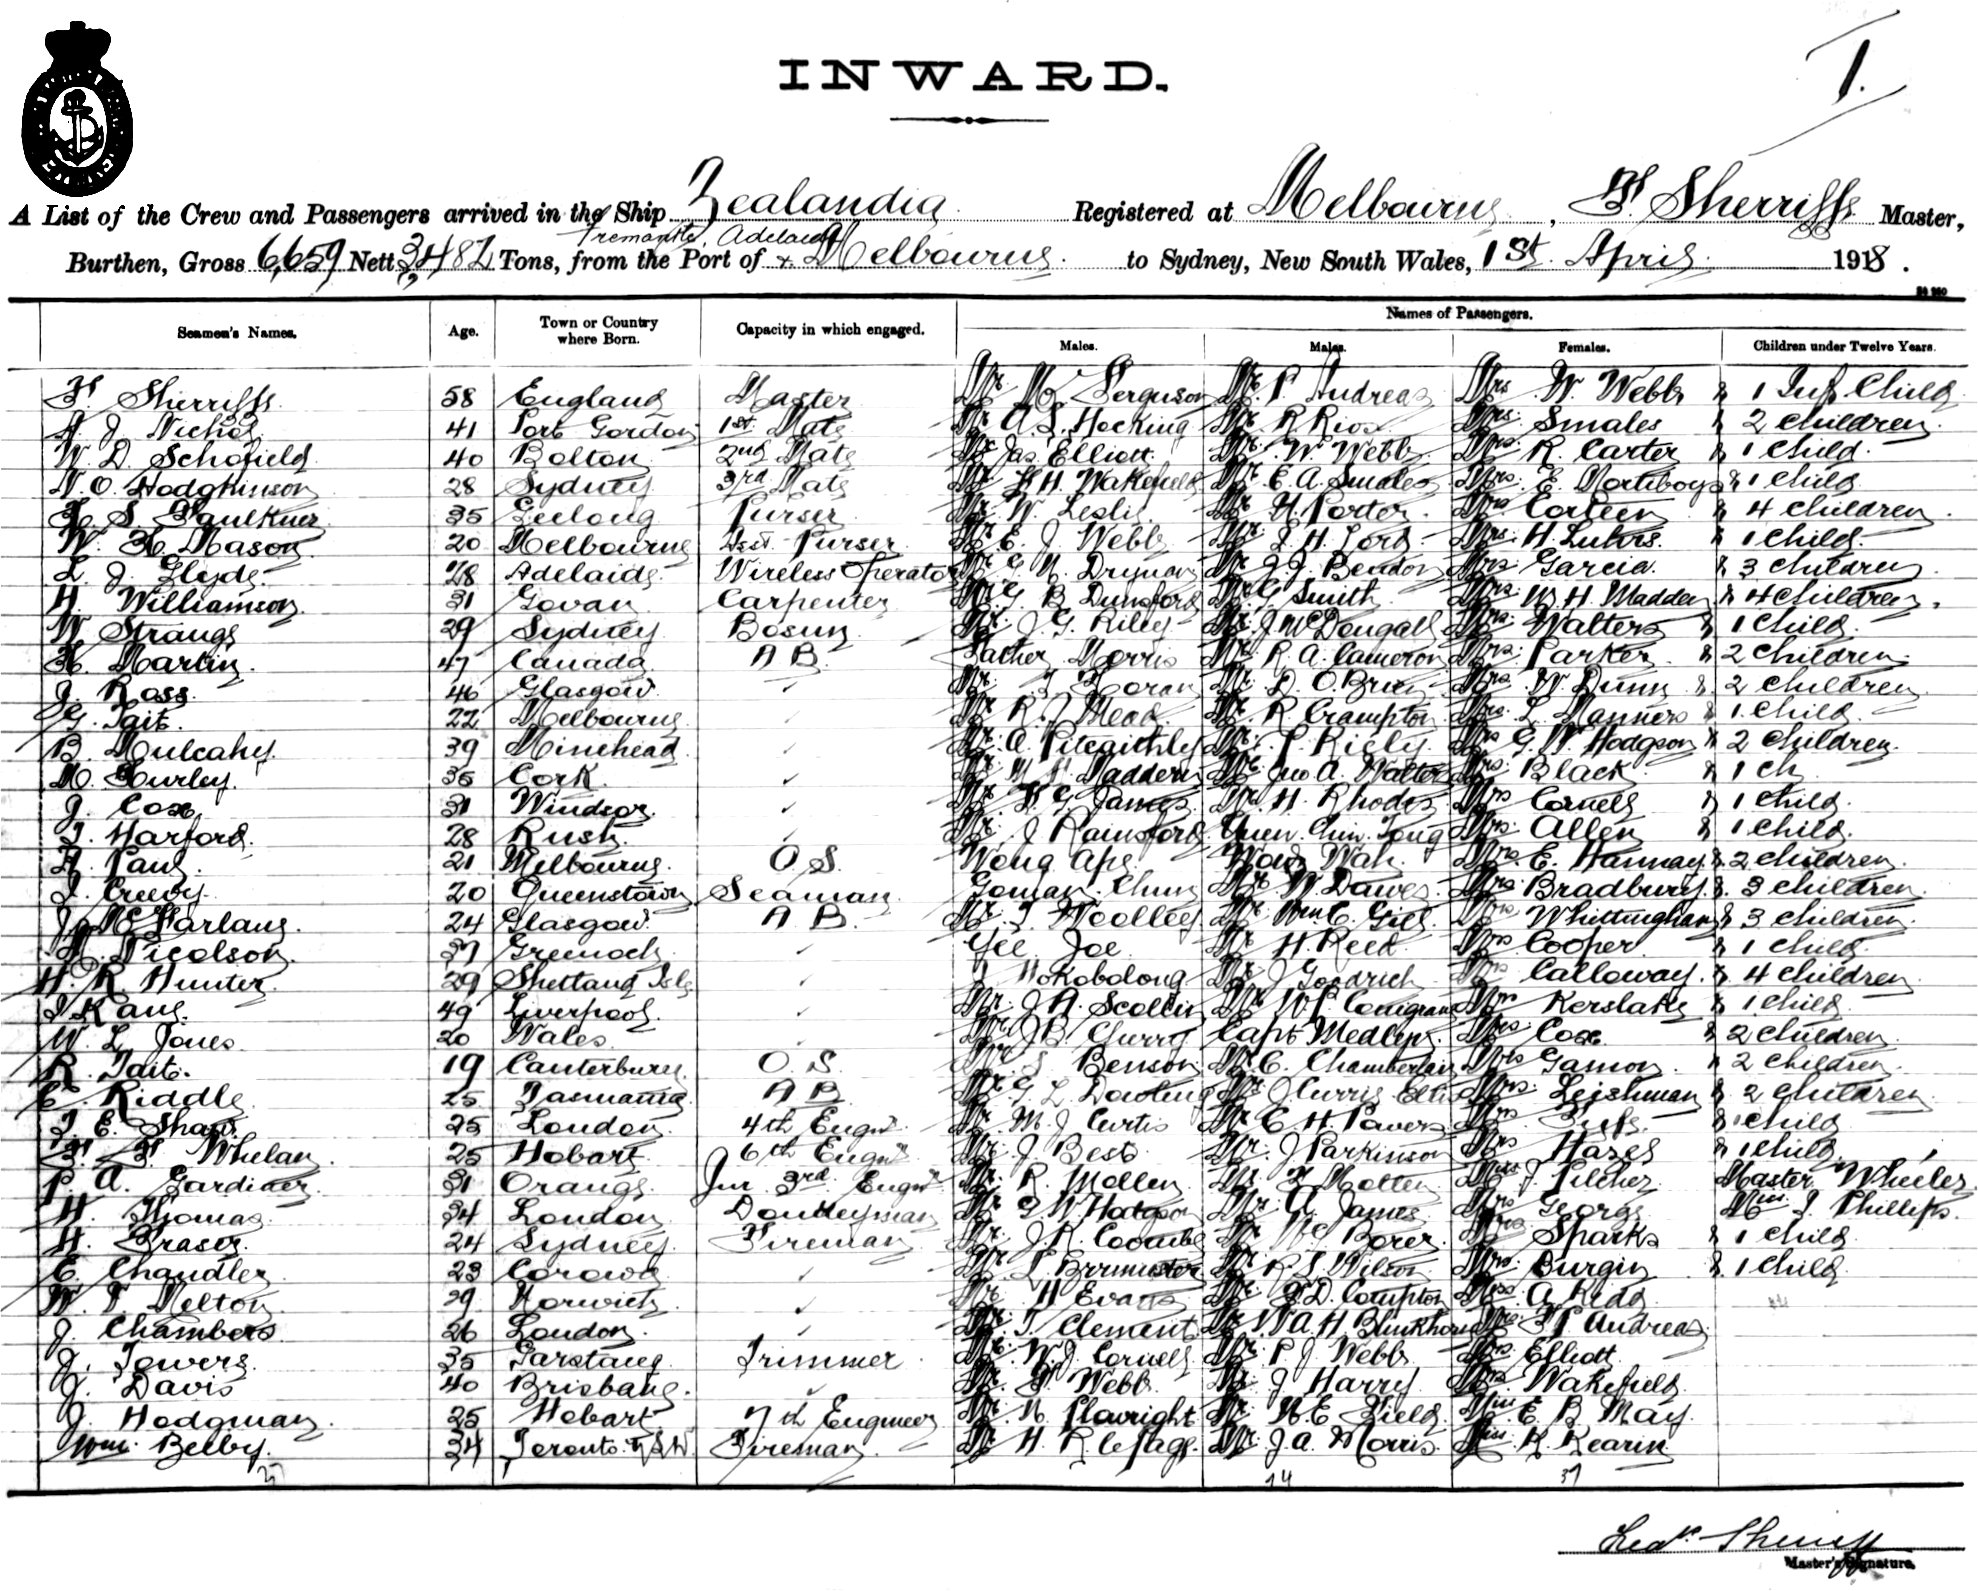 1.
INWARD.
A List of the Crew and Passengers arrived in the Ship Zealandia Registered at Melbourne, F. Sherriffs Master,
Fremantle, Adelaide
Burthen, Gross 6,659 Nett 3,482 Tons, from the Port of & Melbourne. to Sydney, New South Wales, 1st. April 1918.
Names of Passengers.
Seamen's Names. Age. Town or Country where Born. Capacity in which engaged. Males. Males. Females. Children under Twelve Years.
F. Sherriffs 58 England Master Mr. Ferguson Mr. P. Andreas Mrs W. Webb & 1 Inft Child
A. J. Nichol 41 Port Gordon 1st. Mate Mr A. S. Hocking Mr R Rios Mrs. Smales & 2 children
W. D. Schofield 40 Bolton 2nd Mate Mr Jas. Elliott Mr. W. Webb Mrs. R. Carter & 1 child.
N. O. Hodgkinson 28 Sydney 3rd Mate Mr F. H. Wakefield Mr E. A. Smales Mrs. E. Mortiboys & 1 child
S. Faulkner 35 Geelong Purser Mr. W. Leslie Mr H. Porter. Mrs Corteen & 4 children.
W. H. Mason 20 Melbourne Asst. Purser Mr E. J. Webb Mr. J. H. Lord Mrs. H. Lubers. & 1 child.
L. J. Glyde 28 Adelaide Wireless Operator Mr G. N. Drynan Mr J. J. Bendon Mrs Garcia & 3 children
H. Williamson 31 Govan Carpenter Mr G. B. Dunsford Mr G. Smith Mrs W. H. Madden & 4 children.
W. Strange 29 Sydney Bosun Mr. J. G. Riley Mr. J McDougall Mrs. Walters & 1 child.
H. Martin. 47 Canada A B. Father Morris Mr R. A. Cameron Mrs. Parker & 2 children.
J. Ross. 46 Glasgow ✓ Mr. Horan Mr. D. O.Brien Mrs W. Dunn & 2 children
G. Tait. 22 Melbourne ✓ Mr R. J. Mead Mr. R. Crampton Mrs. L. Manners & 1 child
B. Mulcahy 39 Minehead ✓ Mr. A. Pitcaithly Mr. P. Riely Mrs G. W. Hodgson & 2 children.
M. Hurley 35 Cork ✓ Mr Maddern Mr. Jno A. Walter Mrs. Black & 1 ch
J. Cox 31 Windsor ✓ Mr F. G. James Mr. H. Rhodes Mrs Cornell & 1 child.
T. Harford. 28 Rush ✓ Mr. J Rainsford Yuen Chin Tong Mrs. Allen & 1 child.
A. Paul 21 Melbourne. O. S. Wong Ape Wah. Mrs. E. Hannay & 2 children.
J. Creevy 20 Queenstown Seaman Goman Chun Mr. W Dawes. Mrs Bradbury & 3 children.
J. McFarlane. 24 Glasgow A B. Mr. T. Woolley Mr. Wm C. Gill Mrs Whittingham & 3 children.
Nicolson. 37 Greenock ✓ Yee Joe Mr H. Reed Mrs Cooper & 1 child
H. R. Hunter 29 Shetland Isls ✓ Hokobolong Mr. J Goodrich Mrs Calloway. & 4 children
J Kane. 49 Liverpool ✓ Mr. J. A. Scollin Mr W P. Mrs Kerslake & 1 child
W. L. Jones 20 Wales. ✓ Mr. J B. Cherry Capt Medlyn Mrs Cox & 2 children
R. Tait. 19 Canterbury O. S. Mr. Benson Mr. C. Chamberlain Mrs Gamon & 2 children
E. Riddle 25 Tasmania A B. Mr G. L. Dowling Mr J Currie Mrs. Leishman & 2 children
T. E. Shaw 25 London 4th Engnr Mr. M. J. Curtis Mr C H. Pavers Mrs & 1 child
Whelan 25 Hobart 6th Engnr Mr. J Best Mr. J Parkinson Mrs Hazel & 1 child
P. A. Gardiner 31 Orange Jnr 3rd Engnr Mr. R. Mollen Mr. Molten Miss J. Pilcher Master Wheeler
H. Thomas 34 London Donkeyman Mr. G W Hodgson Mr. A. James Mrs George Miss J. Phillips.
H. Fraser 24 Sydney Fireman Mr. J. R. Coombe Mr. Borer. Mrs Sparks & 1 child
E. Chandler 23 Corowa ✓ Mr Burmuster Mr R S Wilson Mrs. Burgin & 1 child
W. T. Melton 29 Norwich ✓ Mr H Evans Mr. F. D. Compton Mrs. A Kidd
J. Chambers 26 London ✓ Mr. T. Clement Mr. W A. H Blinkhorn Mrs. P. Andreas
J. Towers 35 Garstang Trimmer Mr. W. J. Cornell Mr. P. J. Webb Mrs Elliott
J. Davis 40 Brisbane. ✓ Mr. F. Webb Mr. J Harry Mrs. Wakefield
J. Hodgman 25 Hobart 7th Engineer Mr. N. Plavright Mr. H. E. Field Miss. E B. May
Wm. Belby. 34 Toronto N S W Fireman Mr. H. R. LePage. Mr. J. A. Morris. Miss. K. Kearin
74 37
Fredk. Sherriffs
Master's Signature.